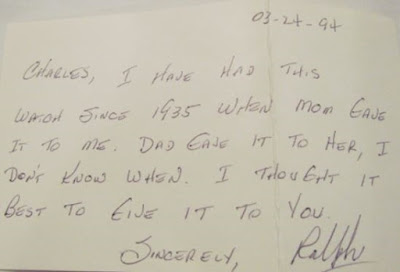 03-24-94
CHARLES, I HAVE HAD THIS
WATCH SINCE 1935 WHEN MOM GAVE
IT TO ME. DAD GAVE IT TO HER, I
DON'T KNOW WHEN. I THOUGHT IT
BEST TO GIVE IT TO YOU.
SINCERELY, Ralph